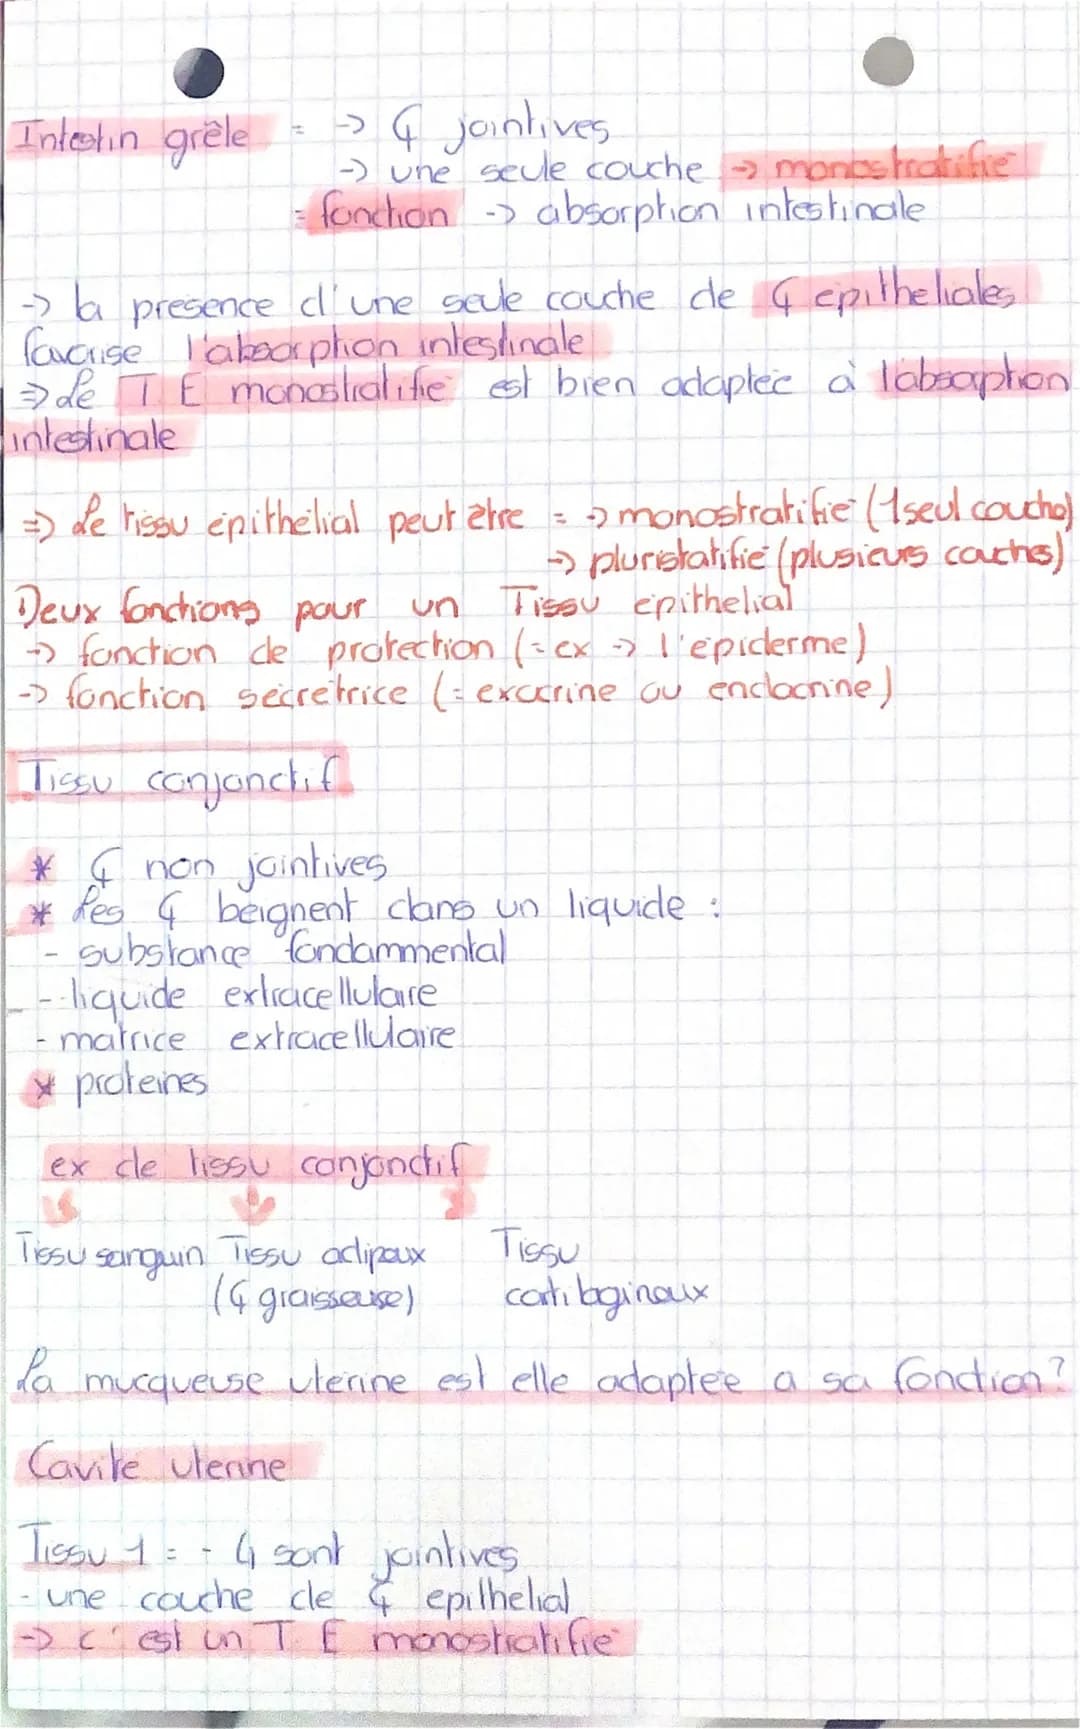 Intestin grêle = -> ₵ jointives
-> une seule couche -> monostratifié
= fonction -> absorption intestinale
-> la presence d'une seule couche de ₵ epitheliales
favorise l'absorption intestinale
=> Le T E monostratifié est bien adaptée à l'absorption
intestinale
=> Le tissu épithélial peut être = -> monostratifié (1 seul couche)
-> pluristatifié (plusieurs couches)
Deux fonctions pour un Tissu epithelial
-> fonction de protection (= ex -> l'epiderme)
-> fonction sécrétrice (= exocrine ou endocrine)
Tissu conjonctif
* ₵ non jointives
* Les ₵ beignent dans un liquide :
- substance fondammental
- liquide extracellulaire
- matrice extracellulaire
* proteines
ex de tissu conjonctif
Tissu sanguin Tissu adipeux Tissu
(₵ graisseuse) cartilagineux
La mucqueuse uterine est elle adaptée a sa fonction ?
Cavité uterine
Tissu 1 = - ₵ sont jointives
- une couche de ₵ epithelial
-> c'est un T. E monostratifié